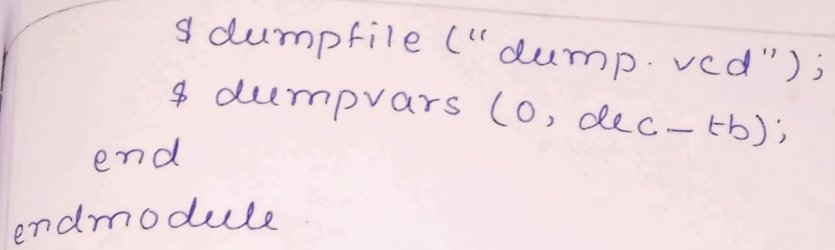 $ dumpfile ("dump.vcd");
$ dumpvars (0, dec_tb);
end
endmodule